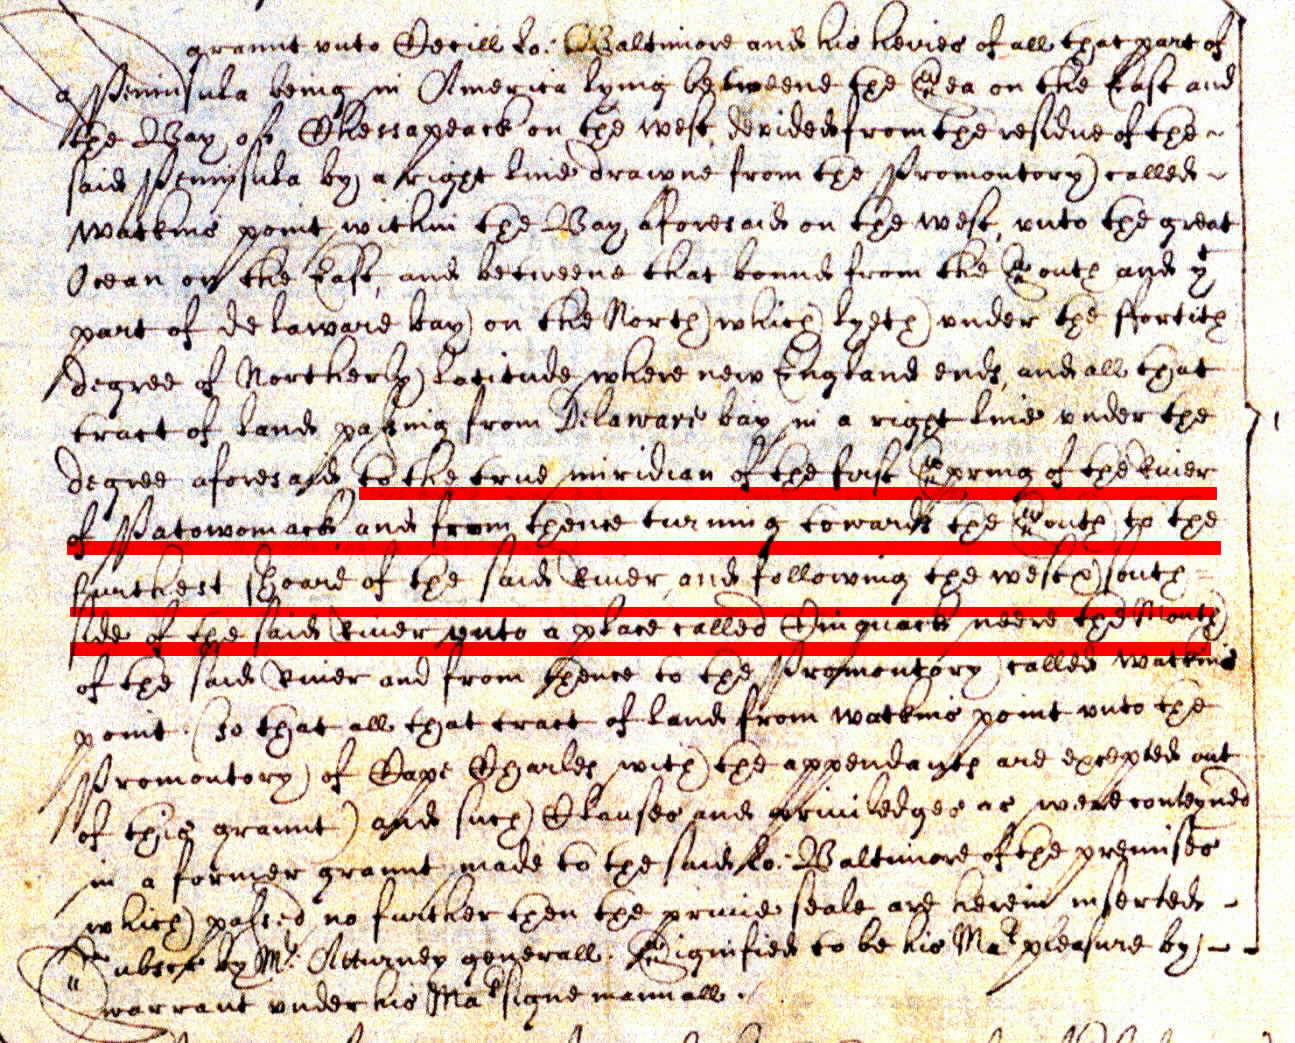 graunt vnto Cecill Lo: Baltimore and his heires of all that part of
a Peninsula being in America lying betweene the Sea on the East and
the Bay of Chessapeack on the west, devided from the residue of the
said Peninsula by a right line drawne from the Promontory called
Watkins point within the Bay aforesaid on the west, vnto the great
Ocean on the East, and betweene that bound from the South and yt
part of delaware bay on the North which lyeth vnder the ffortith
degree of Northerly Latitude where new England ends, and all that
tract of land passing from Delaware bay in a right line vnder the
degree aforesaid to the true miridian of the first Spring of the River
of Patowomack and from thence turning towards the South to the
furthest shoare of the said River and following the west south
side of the said River vnto a place called Cinquack neere the Mouth
of the said River and from thence to the Promontory called Watkins
point (so that all that tract of land from Watkins point vnto the
Promontory of Cape Charles with the appendants are excepted out
of this graunt) and such Clauses and priuiledges as were conteyned
in a former graunt made to the said Lo: Baltimore of the premises
which passed no further then the priuie seale are herein inserted
Subscr by Mr. Atturney generall. Signified to be his Mats pleasure by
warrant vnder his Mats signe manuall.